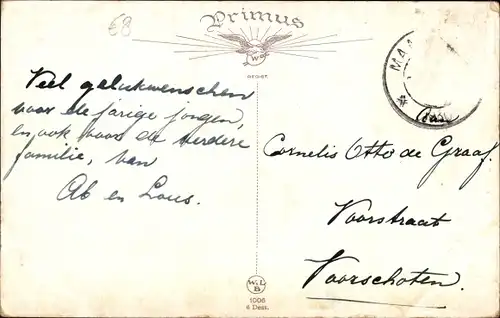 €8
Primus
W.B.
GEDEP.
MAA
Veel gelukwenschen
voor de jarige jongen,
en ook voor de verdere
familie, van
Ab en Lous.
Aan
Cornelis Otto de Graaf.
Voorstraat
Voorschoten.
W.L.
B
1006
6 Dess.